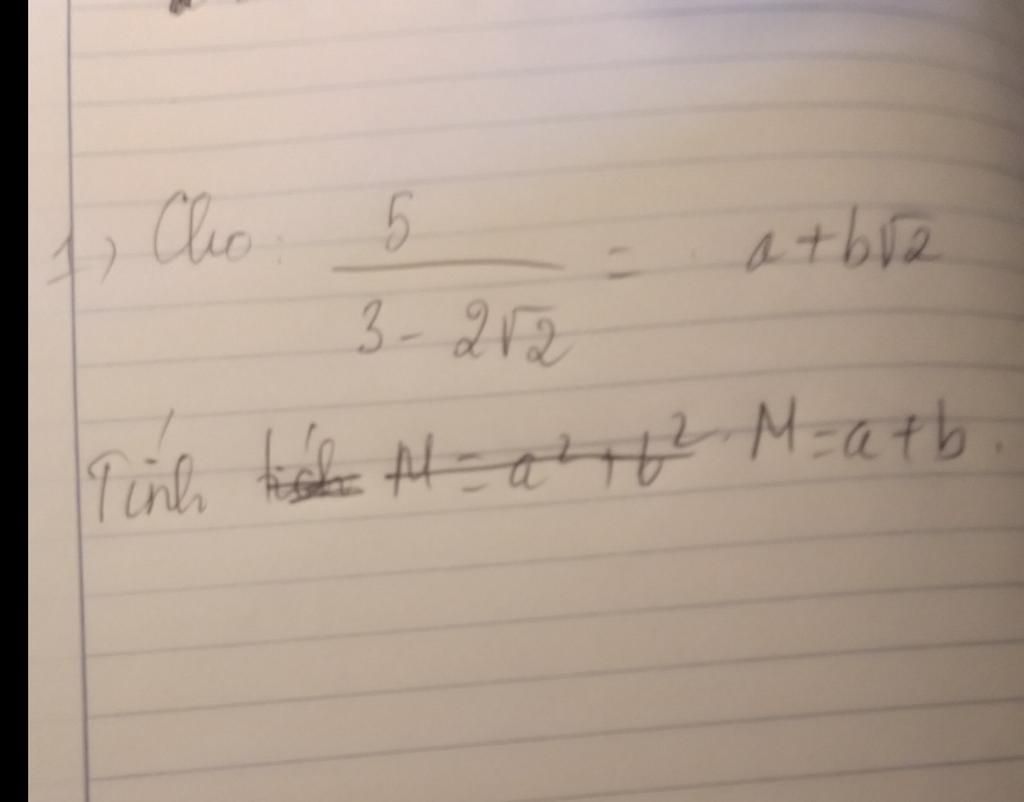 1) Cho: 5 / (3 - 2√2) = a + b√2
Tính tích M = a² + b² M = a + b.